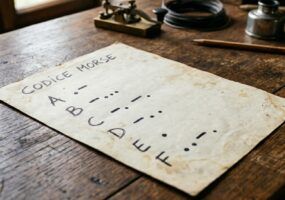 CODICE MORSE
A .-
B -...
C -.-.
D -..
E .
F ..-.